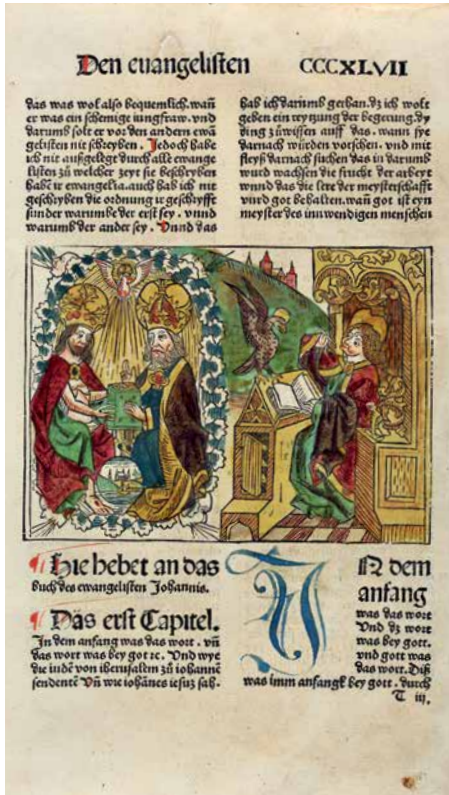 Den euangelisten CCCXLVII
das was wol also bequemlich. wañ
er was ein schemige iungfraw. vnd
darumb solt er vor den andern ewā
gelisten nit schreyben. Jedoch habe
ich nit außgelegt durch alle ewange
listen zů welcher zeyt sie beschryben
habē ir ewangelia. auch hab ich nit
geschryben die ordnung ir geschryfft
sunder warumbe der erst sey. vnnd
warumb der ander sey. Vnnd das
hab ich darumb gethan. dz ich wolt
geben ein reytzung der begerung. dy
ding zů wissen auff das. wann sye
darnach würden vorschen. vnd mit
fleyß darnach suchen das in darumb
wurd wachsen die frucht der arbeyt
vnnd das die lere der meysterschafft
vnd got behalten. wañ got ist eyn
meyster des inwendigen menschen
¶ Hie hebet an das
buch des ewangelisten Johannis.
¶ Das erst Capitel.
Jn dem anfang was das wort. vñ
das wort was bey got ec. Vnd wye
die iudē von iherusalem zů iohannē
sendentē Vñ wie iohānes iesuz sah.
JN dem
anfang
was das wort
Vnd dz wort
was bey gott.
vnd gott was
das wort. Diß
was imm anfangk bey gott. durch
T iij.